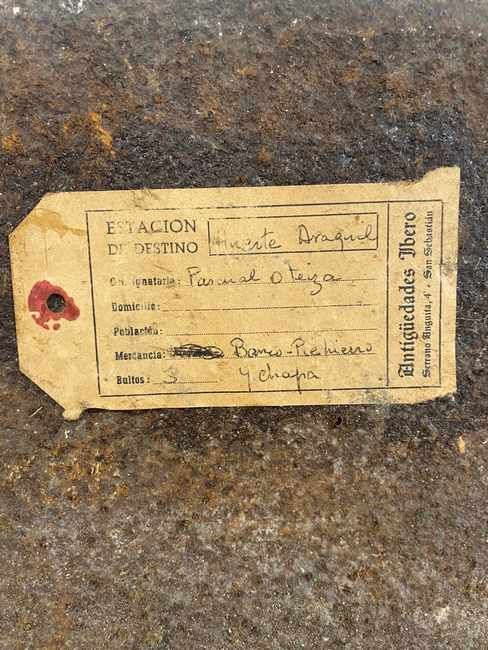 ESTACION
DE DESTINO
Huerte Araquil
Consignatario: Pascual Oteiza
Domicilio:
Población:
Mercancia: Banco-Pie hierro
y chapa
Bultos: 3
Antigüedades Ibero
Serrano Anguita, 4 - San Sebastián